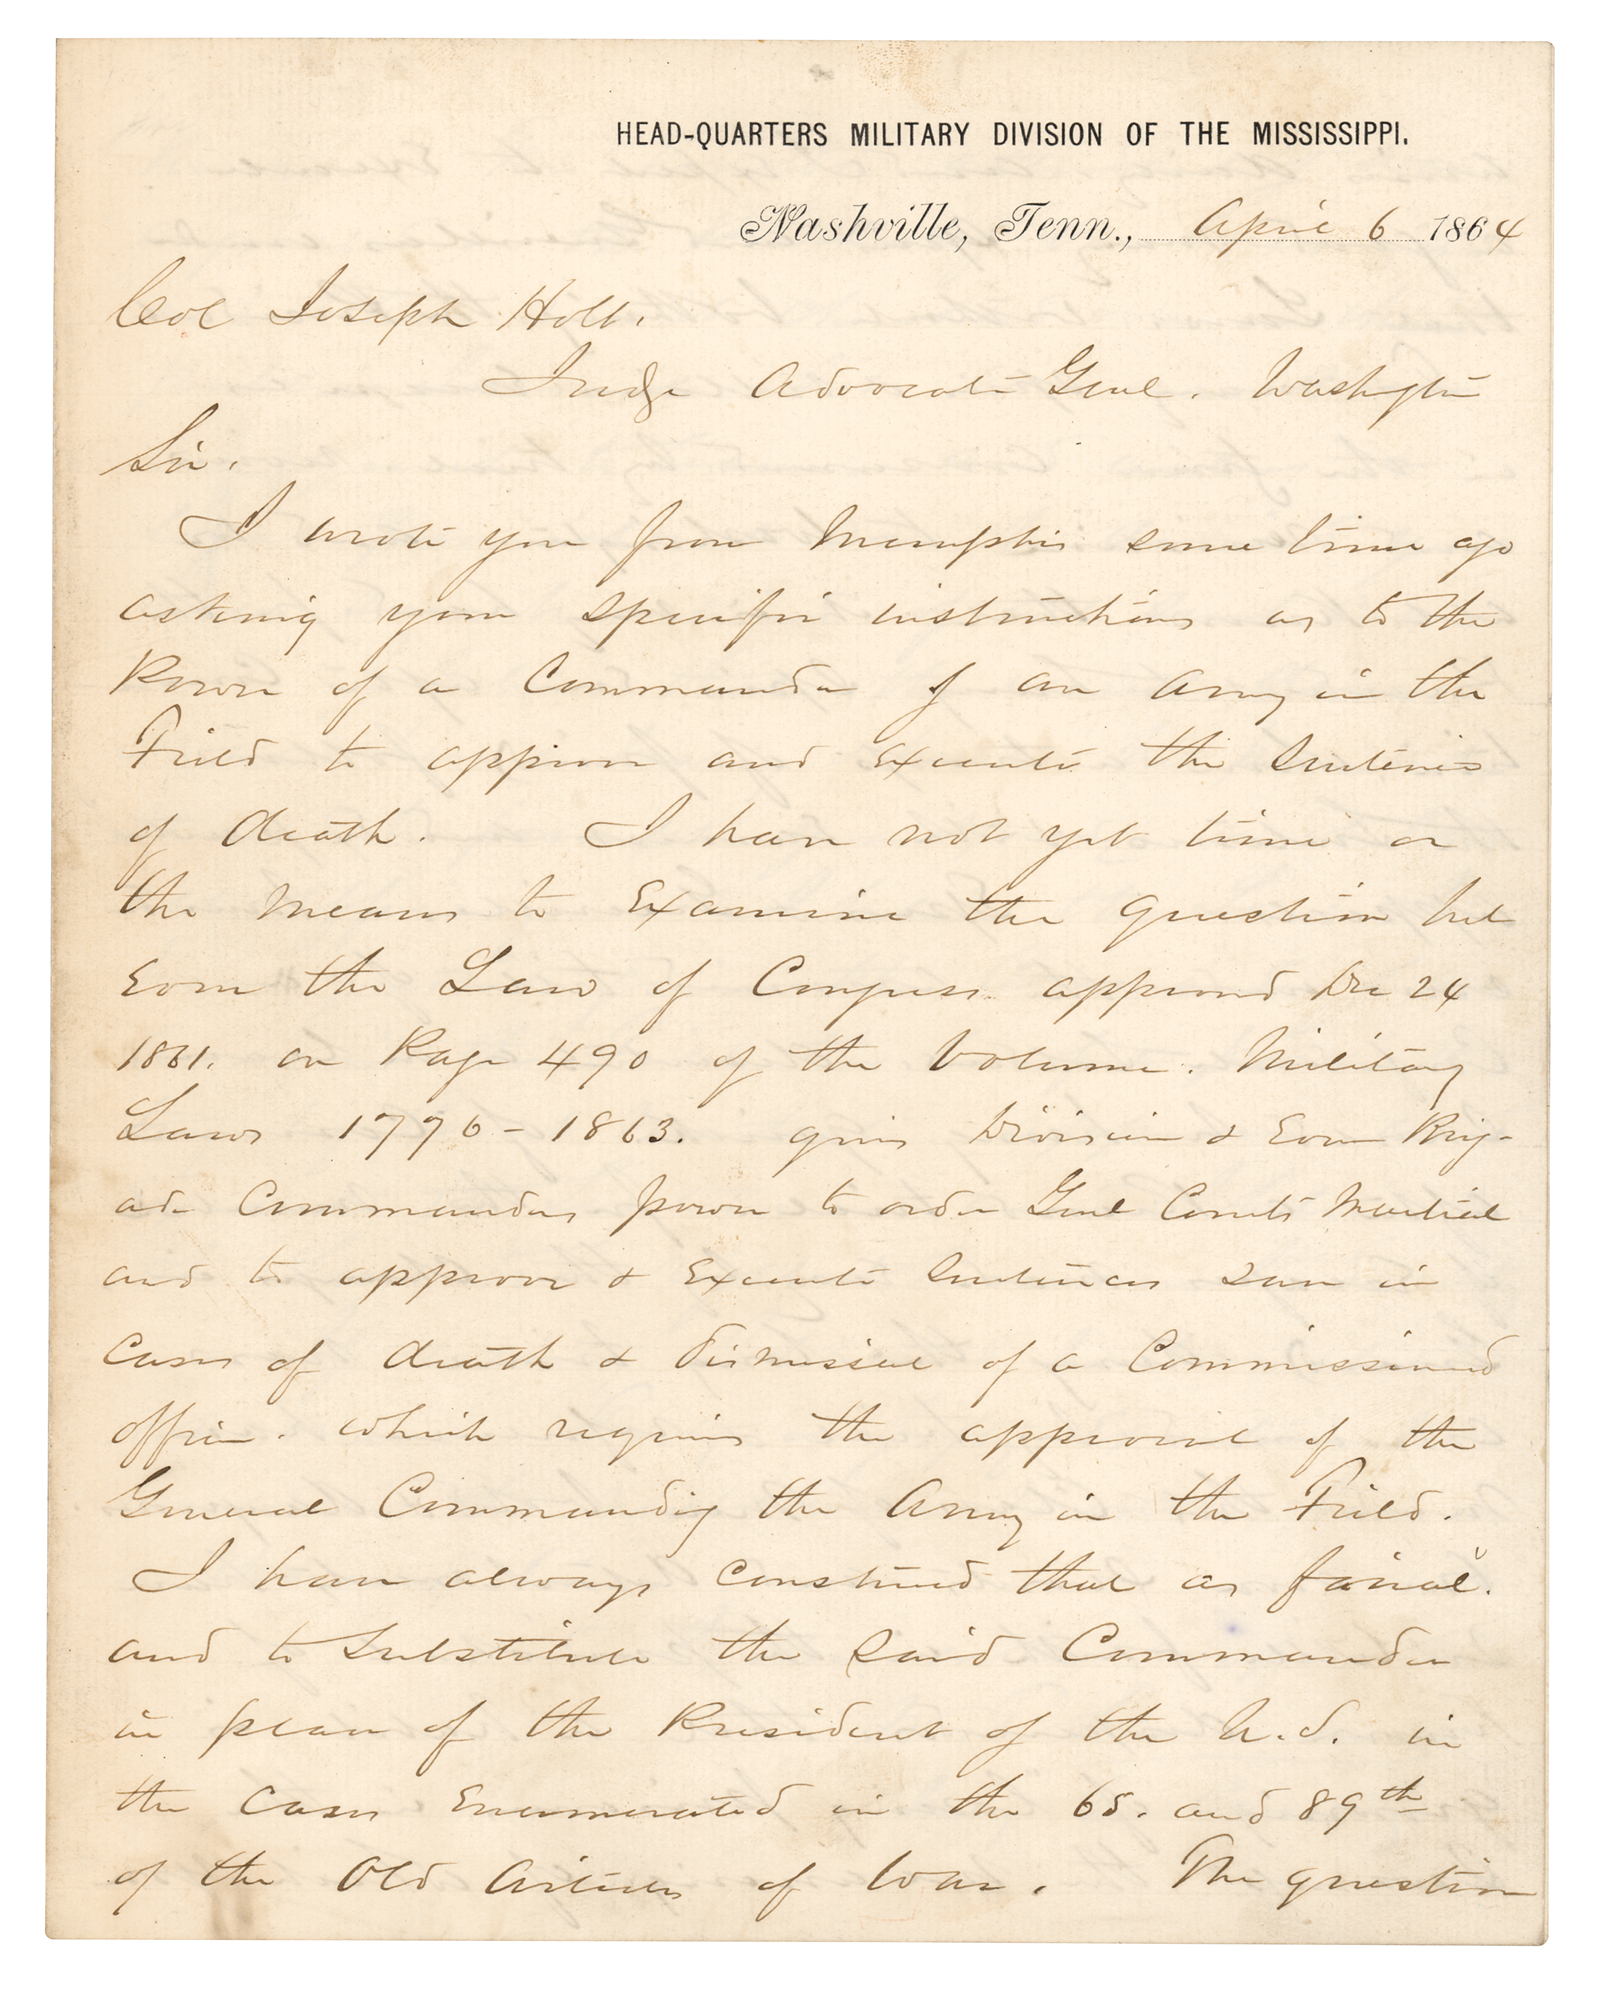 HEAD-QUARTERS MILITARY DIVISION OF THE MISSISSIPPI.
Nashville, Tenn., April 6 1864
Col Joseph Holt.
Judge Advocate Genl. Washington
Sir.
I wrote you from Memphis some time ago
asking your specific instructions as to the
Power of a Commander of an Army in the
Field to approve and execute the sentence
of death. I have not yet time or
the means to Examine the question but
Even the Law of Congress approved Dec 24
1861. on Page 490 of the Volume. Military
Laws 1776-1863. gives Division & Even Brig-
ade Commanders power to order Genl Courts Martial
and to approve & Execute Sentences save in
Cases of death & dismissal of a Commissioned
officer. which requires the approval of the
General Commanding the Army in the Field.
I have always construed that as final.
and to substitute the said Commander
in place of the President of the U.S. in
the Cases Enumerated in the 65. and 89th
of the Old Articles of War. The question